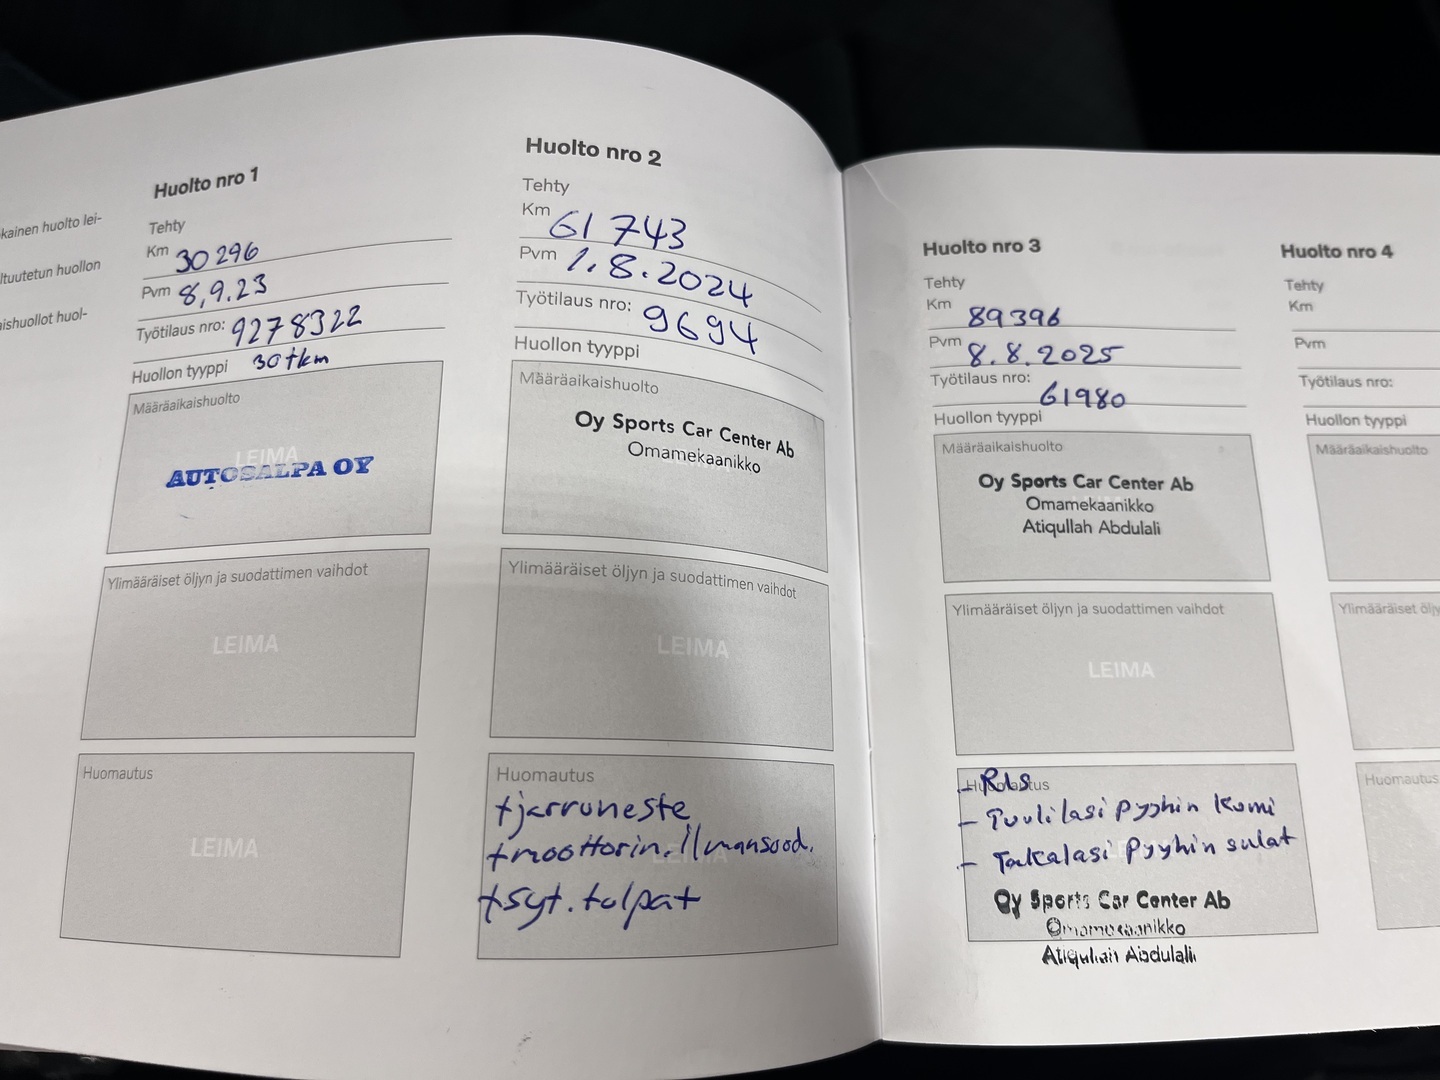 kainen huolto lei-
ltuutetun huollon
aishuollot huol-
Huolto nro 1
Tehty
Km 30 296
Pvm 8,9.23
Työtilaus nro: 9278322
Huollon tyyppi 30 tkm
Määräaikaishuolto
LEIMA
AUTOSALPA OY
Ylimääräiset öljyn ja suodattimen vaihdot
LEIMA
Huomautus
LEIMA
Huolto nro 2
Tehty
Km 61 743
Pvm 1.8.2024
Työtilaus nro: 9694
Huollon tyyppi
Määräaikaishuolto
Oy Sports Car Center Ab
Omamekaanikko
Ylimääräiset öljyn ja suodattimen vaihdot
LEIMA
Huomautus
+jarruneste
+moottorin.ilmansuod.
+syt.tulpat
Huolto nro 3
Tehty
Km 89396
Pvm 8.8.2025
Työtilaus nro: 61980
Huollon tyyppi
Määräaikaishuolto
Oy Sports Car Center Ab
Omamekaanikko
Atiqullah Abdulali
Ylimääräiset öljyn ja suodattimen vaihdot
LEIMA
Huomautus
- Tuulilasi pyyhin kumi
- Takalasi pyyhin sulat
Oy Sports Car Center Ab
Omamekaanikko
Atiqullah Abdulali
Huolto nro 4
Tehty
Km
Pvm
Työtilaus nro:
Huollon tyyppi
Määräaikaishuolto
Ylimääräiset öljy
Huomautus